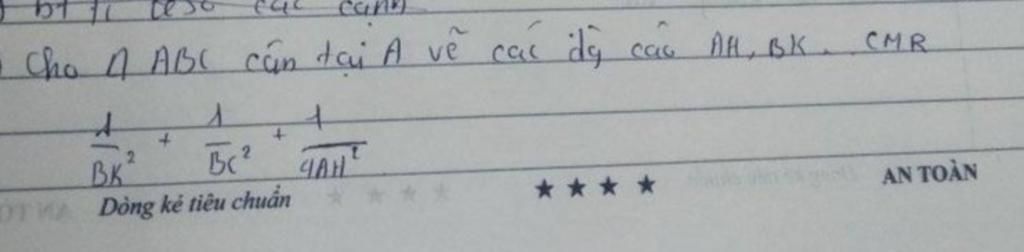 Cho Δ ABC cân tại A vẽ các đg cao AH, BK. CMR
1/BK² + 1/BC² + 1/4AH²
Dòng kẻ tiêu chuẩn ★ ★ ★ ★ AN TOÀN